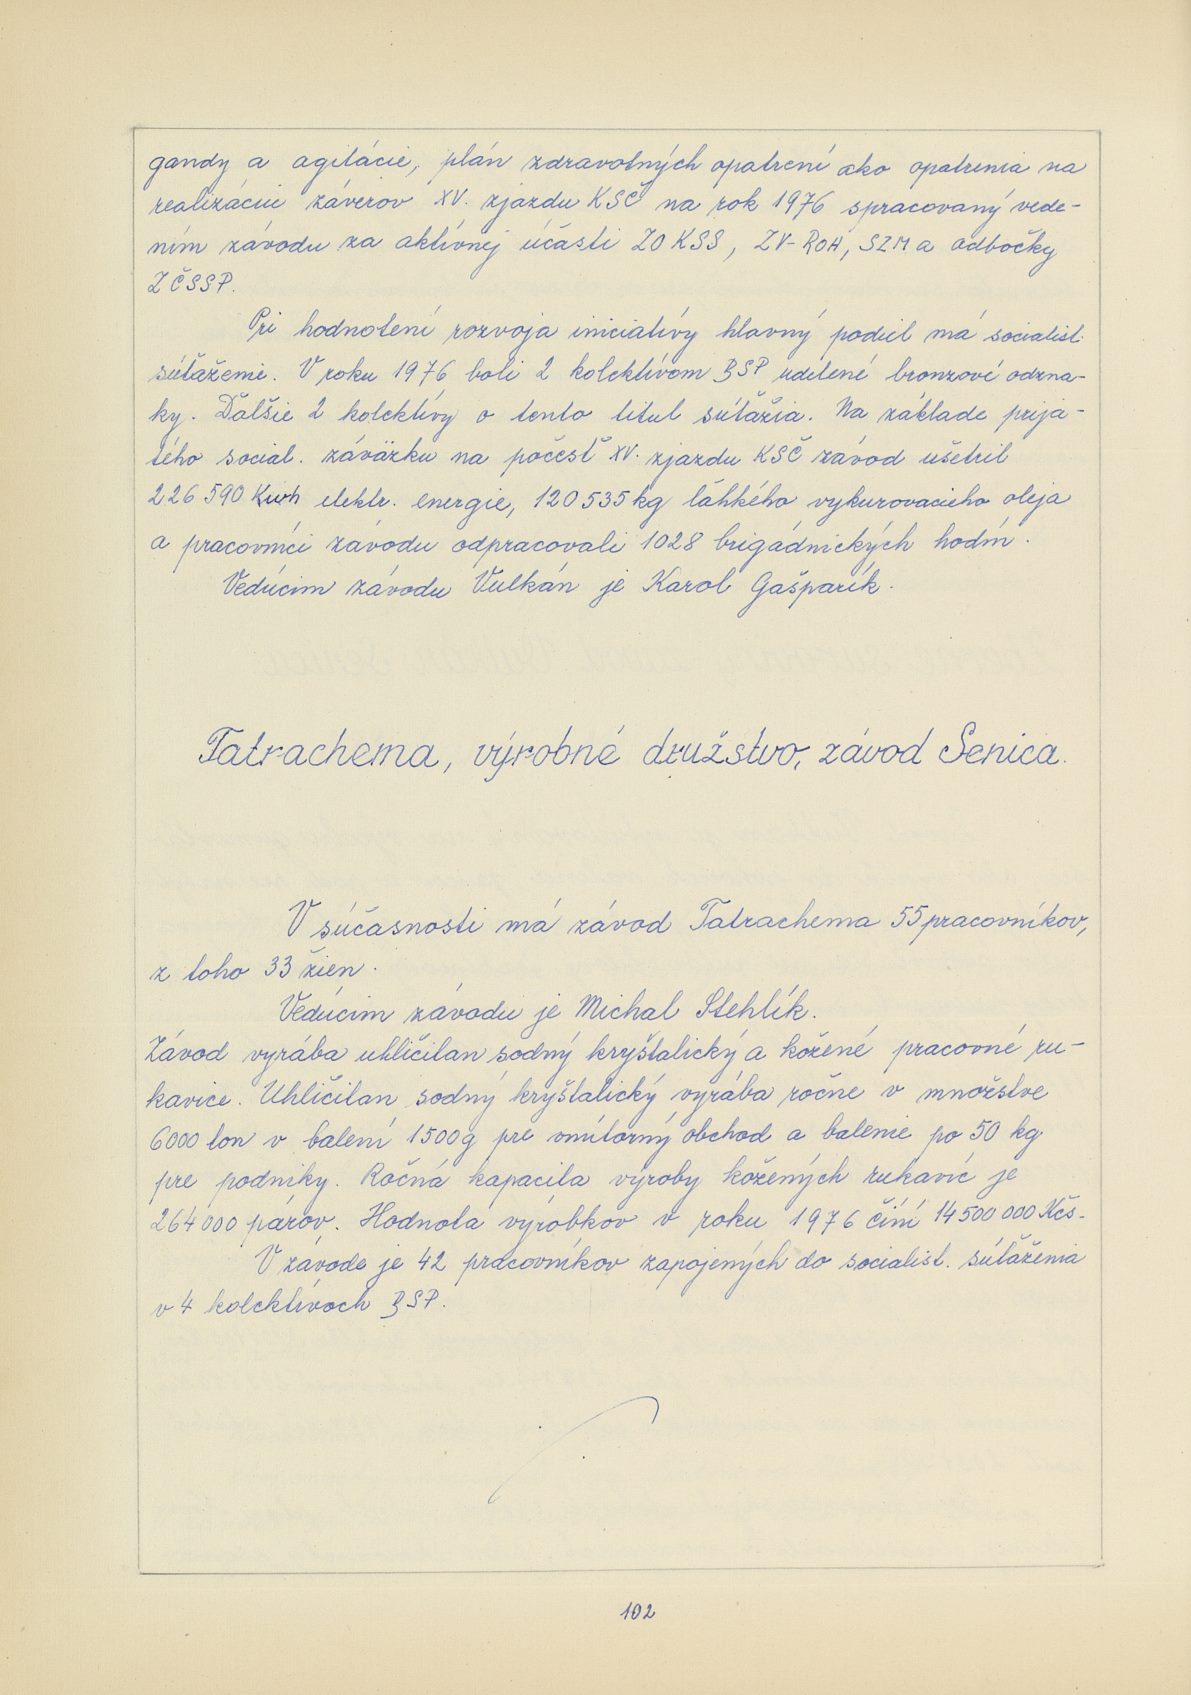 gandy a agitácie, plán zdravotných opatrení ako opatrenia na
realizáciu záverov XV. zjazdu KSČ na rok 1976 spracovaný vede-
ním závodu za aktívnej účasti ZO KSS, ZV-ROH, SZM a odbočky
ZČSSP.
Pri hodnotení rozvoja iniciatívy hlavný podiel má socialist.
súťaženie. V roku 1976 boli 2 kolektívom BSP udelené bronzové odzna-
ky. Ďalšie 2 kolektívy o tento titul súťažia. Na základe prija-
tého social. záväzku na počesť XV. zjazdu KSČ závod ušetril
226 590 Kwh elektr. energie, 120 535 kg ľahkého vykurovacieho oleja
a pracovníci závodu odpracovali 1028 brigádnických hodín.
Vedúcim závodu Vulkán je Karol Gašparík.
Tatrachema, výrobné družstvo, závod Senica.
V súčasnosti má závod Tatrachema 55 pracovníkov,
z toho 33 žien.
Vedúcim závodu je Michal Stehlík.
Závod vyrába uhličitan sodný kryštalický a kožené pracovné ru-
kavice. Uhličitan sodný kryštalický vyrába ročne v množstve
6000 ton v balení 1500 g pre vnútorný obchod a balenie po 50 kg
pre podniky. Ročná kapacita výroby kožených rukavíc je
264 000 párov. Hodnota výrobkov v roku 1976 číní 14 500 000 Kčs.
V závode je 42 pracovníkov zapojených do socialist. súťaženia
v 4 kolektívoch BSP.
102